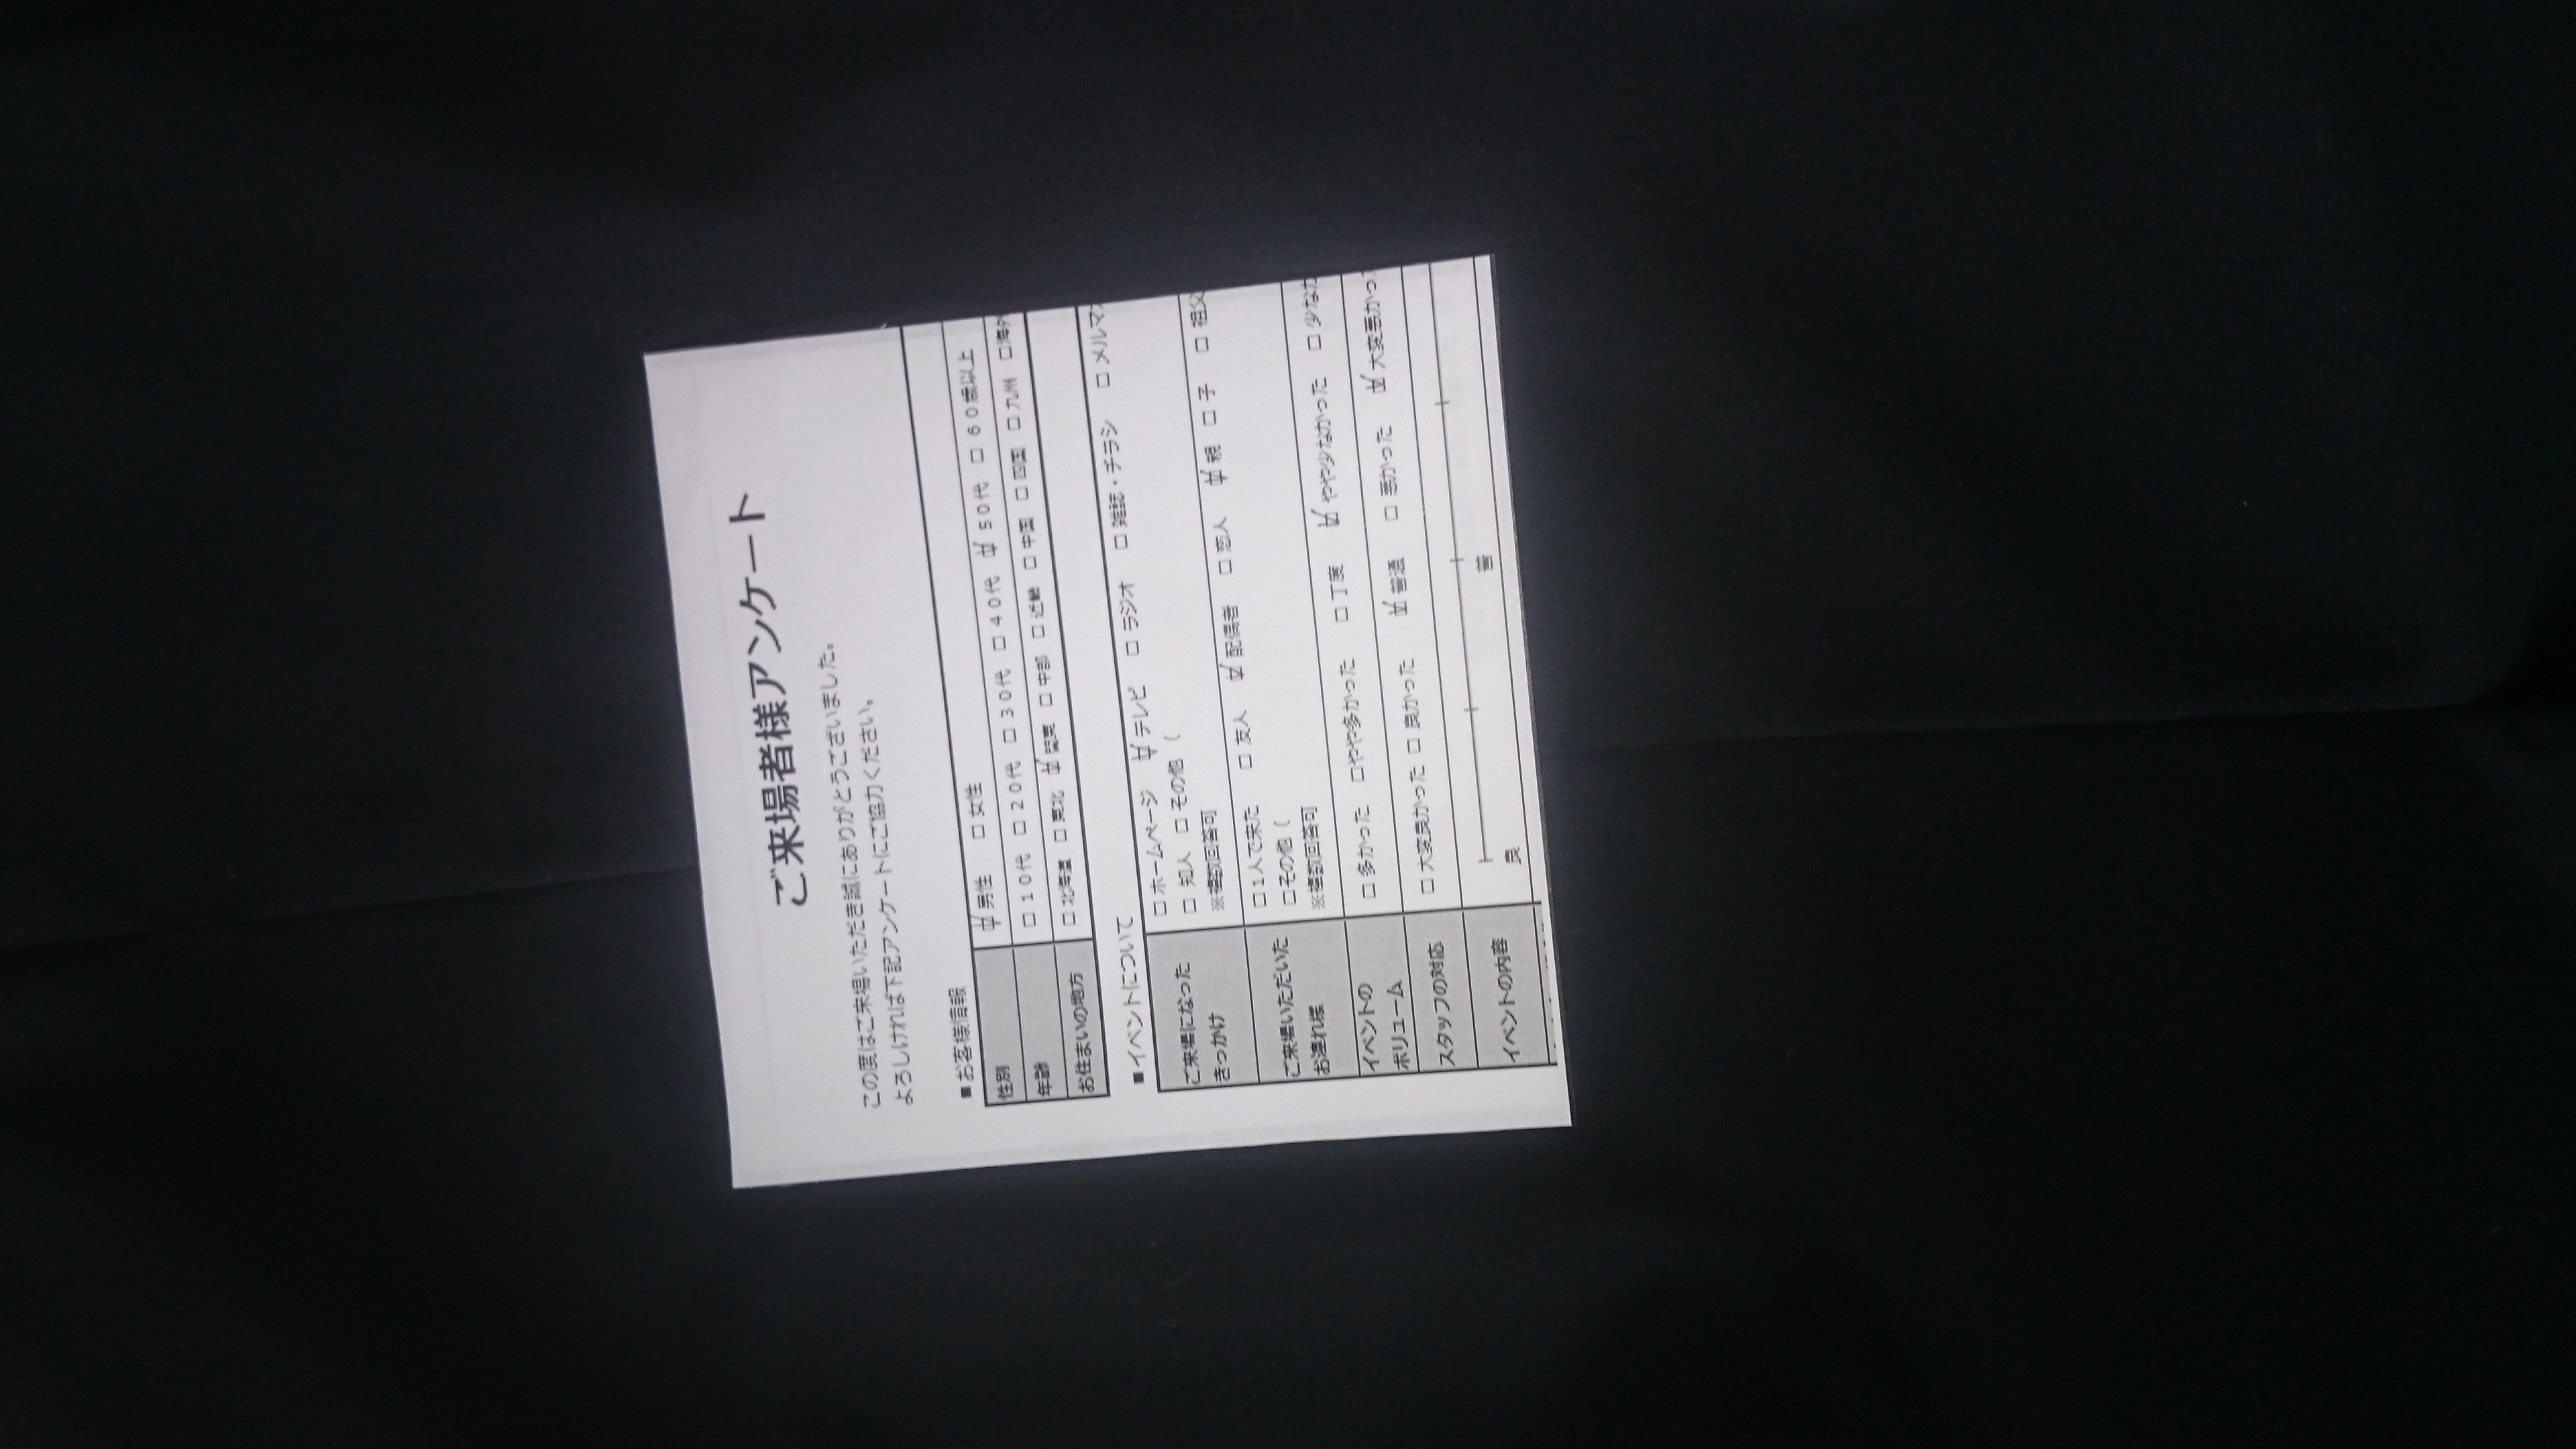 ご来場者様アンケート
この度はご来場いただき誠にありがとうございました。
よろしければ下記アンケートにご協力ください。
■お客様情報
性別 ☑ 男性 □ 女性
年齢 □ 10代 □ 20代 □ 30代 □ 40代 ☑ 50代 □ 60歳以上
お住まいの地方 □ 北海道 □ 東北 ☑ 関東 □ 中部 □ 近畿 □ 中国 □ 四国 □ 九州 □海外
■イベントについて
ご来場になった
きっかけ
□ ホームページ ☑ テレビ □ ラジオ □ 雑誌・チラシ □ メルマガ
□ 知人 □ その他 （
※複数回答可
ご来場いただいた
お連れ様
□1人で来た □ 友人 ☑ 配偶者 □ 恋人 ☑ 親 □ 子 □ 祖父
□その他（
※複数回答可
イベントの
ボリューム
□ 多かった □やや多かった □ 丁度 ☑ やや少なかった □ 少なか
スタッフの対応 □ 大変良かった □ 良かった ☑ 普通 □ 悪かった ☑ 大変悪かっ
イベントの内容
良 普